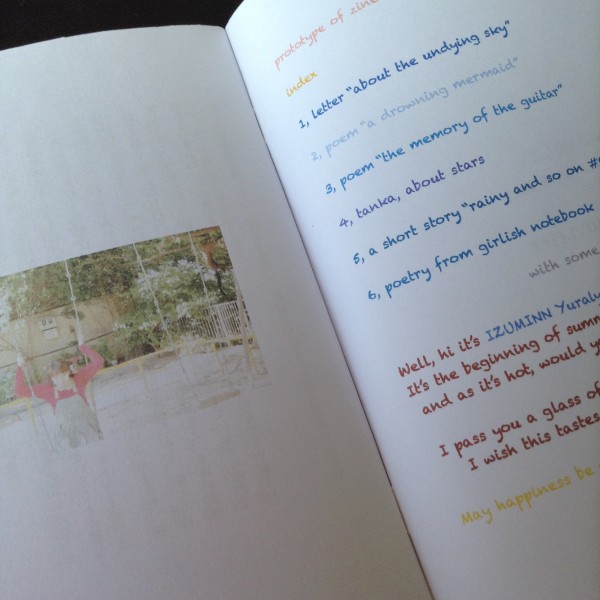 prototype of zine
index
1, letter "about the undying sky"
2, poem "a drowning mermaid"
3, poem "the memory of the guitar"
4, tanka, about stars
5, a short story "rainy and so on #
6, poetry from girlish notebook
with some
Well, hi it's IZUMINN Yuraly
It's the beginning of summ
and as it's hot, would yo
I pass you a glass of
I wish this tastes
May happiness be